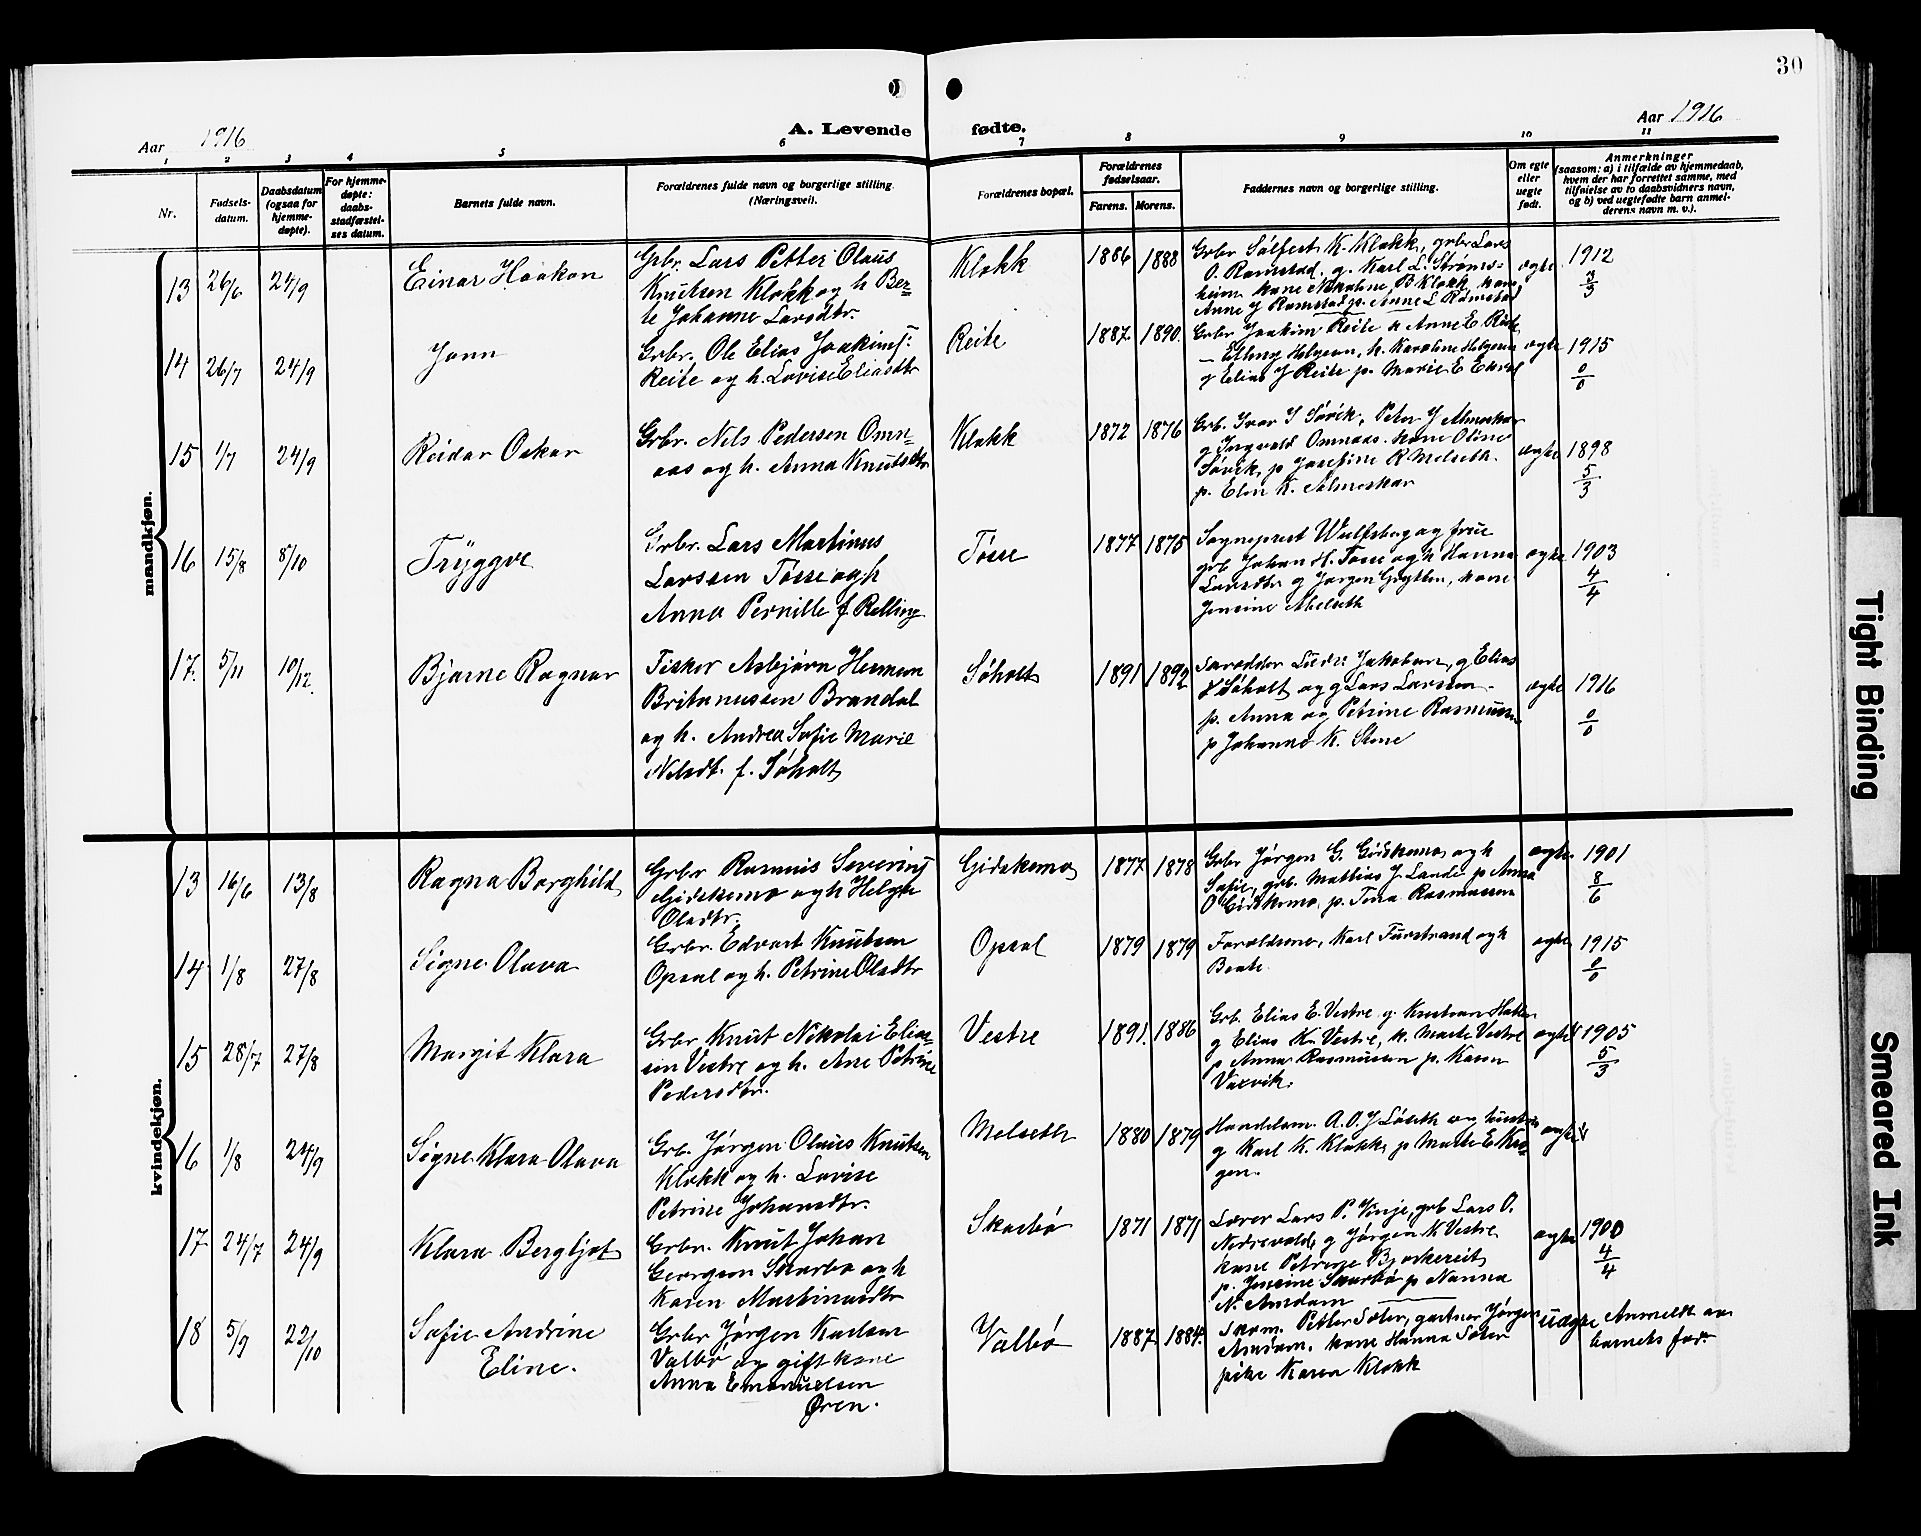 30
Aar 1916
A. Levende fødte.
Aar 1916
1 2 3 4 5 6 7 8 9 10 11
Nr.
Fødsels-
datum.
Daabsdatum
(ogsaa for
hjemme-
døpte).
For hjemme-
døpte:
daabs-
stadfæstel-
ses datum.
Barnets fulde navn.
Forældrenes fulde navn og borgerlige stilling.
(Næringsvei).
Forældrenes bopæl.
Forældrenes
fødselsaar.
Farens. Morens.
Faddernes navn og borgerlige stilling.
Om egte
eller
uegte
født.
Anmerkninger
(saasom: a) i tilfælde av hjemmedaab,
hvem der har forrettet samme, med
tilføielse av to daabsvidners navn,
og b) ved uegtefødte barn anmel-
derens navn m. v.).
mandkjøn.
13 26/6 24/9 Einar Haakon
Grbr. Lars Petter Olaus
Knutsen Klokk og h Ber-
te Johanne Larsdtr.
Klokk 1886 1888
Grbr Sølfest K. Klokk, grbr Lars
O. Ramstad, g. Karl L. Strøms-
heim kone Nikoline B Klokk, kone
Anne J Ramstad p. Anne L Ramstad
ægte 1912
3/3
14 26/7 24/9 Jonn
Grbr. Ole Elias Joakims:
Reite og h. Lovise Eliasdtr
Reite 1887. 1890.
Grbr Joakim Reite k Anne E. Reite
g Elias J Reite p. Marie E
ægte 1915
0/0
15 1/7 24/9 Reidar Oskar
Grbr. Nels Pedersen Omn-
aas og h. Anna Knutsdtr
Klokk 1872 1876
Grb. Ivar I Søvik, Peter J Almeskar
g Ingvald Omnaas. kone Oline
Søvik, p Josefine R Melseth.
p. Elen K. Almeskar
ægte 1898
5/3
16 15/8 8/10 Tryggve
Grbr. Lars Martinus
Larssen Tøsse og h
Anna Pernille f Relling
Tøsse 1877 1875
Sogneprest Wulfsberg og frue
grb Johan H. Tøsse og h Hanna
Larsdtr g Jørgen, kone
Jensine Melseth
ægte 1903
4/4
17. 5/11 10/12. Bjarne Ragnar
Fisker Asbjørn Herman
Britanussen Brandal
og h. Andrea Sofie Marie
Nelsdt. f. Søholt
Søholt 1891 1892
Jakobsen, g Elias
Søholt og g Lars Larssen
p. Anna og Petrine Rasmussen
p Johanne K. Stene
ægte 1916
0/0
kvindekjøn.
13 16/6 13/8 Ragna Borghild
Grbr Rasmus Severins
Gidskemo og h Helga
Olsdtr.
Gidskemo 1877 1878
Grbr Jørgen G. Gidskemo og h
Sofie, grb. Mathias J. Lande p Anna
O Gidskemo, p. Tora Rasmussen
ægte. 1901
8/6
14 1/8 27/8 Signe Olava
Grbr. Edvart Knutsen
Opsal og h. Petrine Olsdtr
Opsal 1879 1879
Forældrene, Karl Furstrand og h
Beate.
ægte 1915
0/0
15 28/7 27/8 Margit Klara
Grbr Knut Nikolai Elias-
sen Vestre og h. Ane Petrine
Pedersdtr.
Vestre 1891. 1886
Grb. Elias E. Vestre g. Knut
g Elias K. Vestre, k. Marte Vestre
p Anna Rasmussen p. Karen
Vaxvik.
ægte 1905
5/3
16 1/8 24/9 Signe Klara Olava
Grb. Jørgen Olaus Knutsen
Klokk og h. Lovise
Petrine Johansdtr.
Melseth 1880 1879
Handelsm. A. O. J Løseth og hustru
g Karl K. Klokk, p Marte E Kro-
gen.
ægte
17 24/7 24/9 Klara Bergljot
Grbr. Knut Johan
Georgsen Skarbø og h
Karen Martinusdtr
Skarbø 1871 1871
Lærer Lars P. Vinje, grb Lars O.
Nedrevold, g Jørgen K Vestre
kone Petrine Bjørkereit
p. Jensine Skarbø p Nanna
N. Amdam
ægte 1900
4/4
18 5/9 22/10 Sofie Andrine
Eline.
Grbr Jørgen Karlsen
Valbø og gift kone
Anna Emanuelsen
Øren.
Valbø 1887. 1884.
Skom. Petter Soter, gartner Jørgen
Amdam, kone Hanna Soter
pike Karen Klokk
uægte Anmeldt av
barnets far.
Tight Binding
Smeared Ink